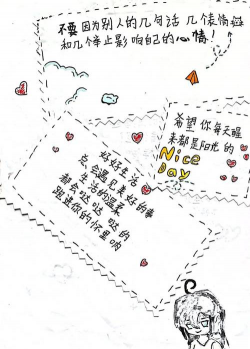 不要因为别人的几句话 几个表情
和几个举止影响自己的心情!
希望 你每天醒
来都是阳光 的
Nice
Day
好好生活
总会遇见美好的事
生活的温柔
都会哒 哒 哒的
跑进你的怀里呐